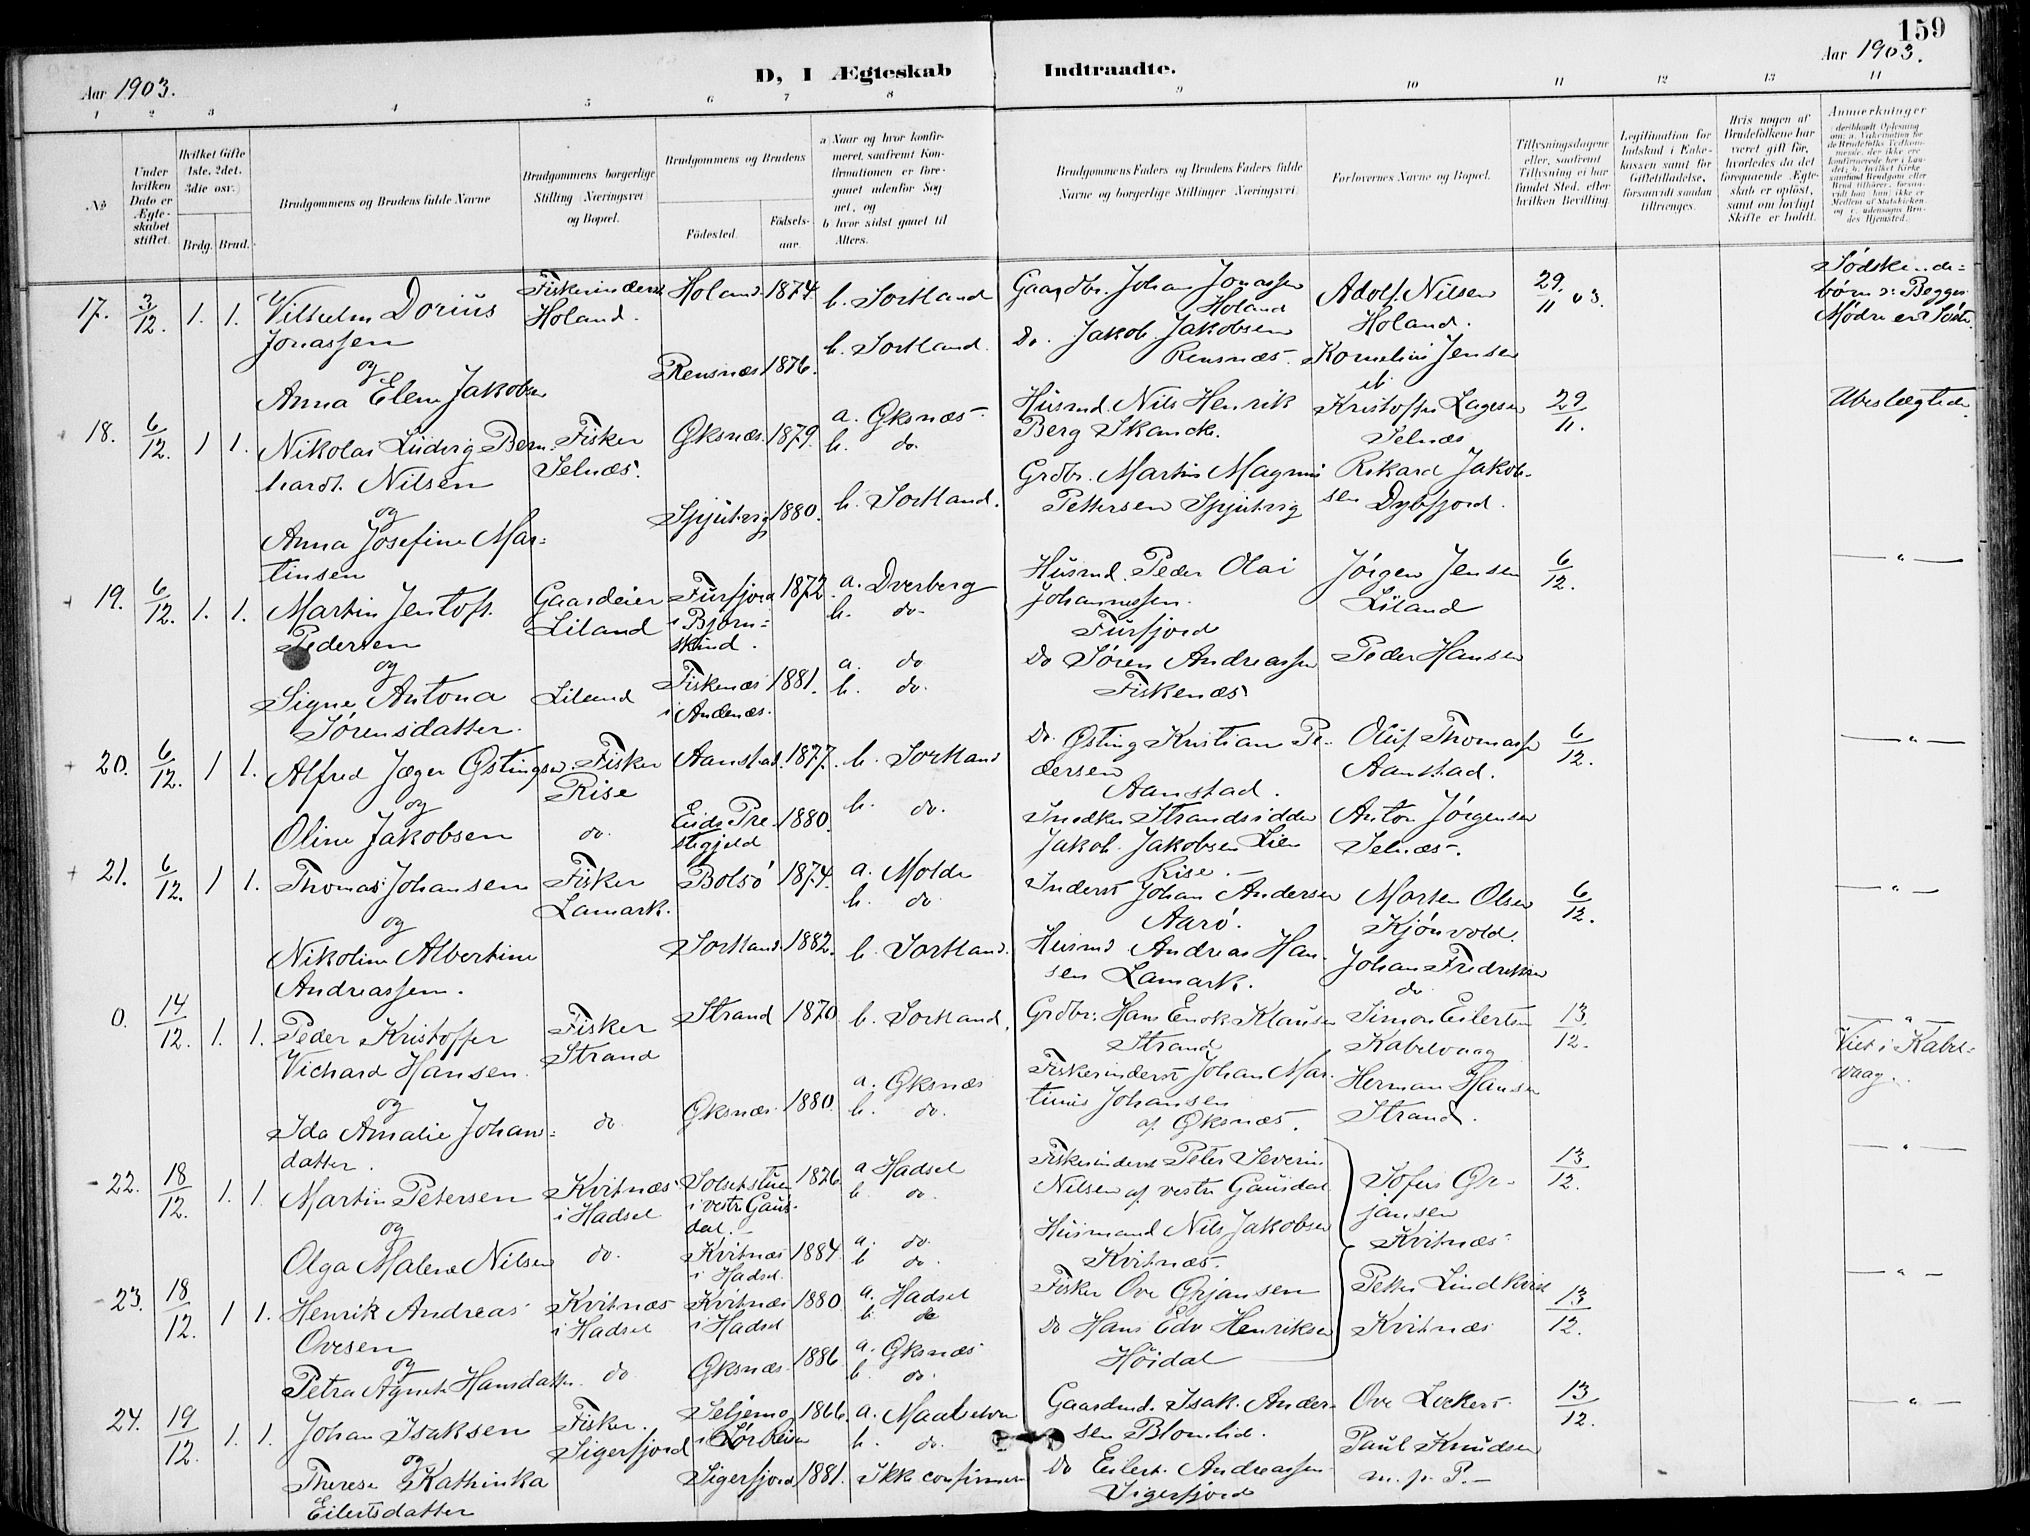 159
Aar 1903.
D, I Ægteskab Indtraadte.
Aar 1903.
1 2 3 4 5 6 7 8 9 10 11 12 13 14
No
Under hvilken Dato er Ægteskabet stiftet.
Hvilket Gifte (1ste, 2det, 3die osv.)
Brdg. Brud.
Brudgommens og Brudens fulde Navne
Brudgommens borgerlige Stilling (Næringsvei) og Bopæl.
Brudgommens og Brudens
Fødested.
Fødselsaar.
a) Naar og hvor konfirmeret, saafremt Konfirmationen er foregaaet udenfor Sognet, og
b) hvor sidst gaaet til Alters.
Brudgommens Faders og Brudens Faders fulde Navne og borgerlige Stillinger (Næringsvei)
Forlovernes Navne og Bopæl.
Tillysningsdagene eller, saafremt Tillysning ei har fundet Sted, efter hvilken Bevilling.
Legitimation for Indskud i Enkekassen samt for Giftetilladelse, forsaavidt saadan tiltrænges.
Hvis nogen af Brudefolkene har været gift før, hvorledes da det foregaaende Ægteskab er opløst, samt om lovligt Skifte er holdt.
Anmærkninger
17. 3/12. 1. 1. Vilhelm Dorius
Jonassen
og
Anna Elene Jakobsen
Fiskerinderst
Holand.
Holand 1874.
Rensnæs 1876.
b. Sortland
b. Sortland.
Gaardbr. Johan Jonassen
Holand
Do. Jakob Jakobsen
Rensnæs.
Adolf Nilsen
Holand.
Kornelius Jensen
ib.
29/11 03.
Sødskende-
børn ɔ: Begges
Mødre ere Søstre
18. 6/12. 1 1. Nikolai Ludvig Bern-
hardt Nilsen
og
Anna Josefine Mar-
tinsen
Fisker
Selnæs.
Øksnæs 1879.
Spjutvig 1880.
a. Øksnæs.
b. do.
b. Sortland.
Husmd. Nils Henrik
Berg Skancke.
Grdbr. Martin Magnus
Pettersen Spjutvig
Kristoffer Lagesen
Selnæs
Rikard Jakob-
sen Dybfjord.
29/11.
Ubeslægtede
19. 6/12. 1. 1. Martin Jentoft
Pedersen
og
Signe Antona
Sørensdatter.
Gaardeier
Liland
Liland
Furfjord 1872.
i Bjørn-
skind.
Fiskenæs 1881.
i Andenæs.
a. Dverberg
b. do.
a. do
b. do.
Husmd. Peder Olai
Johannessen.
Furfjord
Do Søren Andreassen
Fiskenæs
Jørgen Jensen
Liland
Peder Hansen
6/12.
— " —
20. 6/12. 1 1. Alfred Jæger Østingsen
og
Oline Jakobsen
Fisker
Rise
do.
Aanstad. 1877.
Eids Pre- 1880.
stegjeld
b. Sortland
b. do.
Do. Østing Kristian Pe-
dersen
Aanstad.
Snedker Strandsidder
Jakob Jakobsen Lien
Rise.
Oluf Thomassen
Aanstad.
Anton Jørgensen
Selnæs.
6/12.
— " —
21. 6/12. 1 1. Thomas Johansen
og
Nikoline Albertine
Andreassen.
Fisker
Lamark.
Bolsø 1874.
Sortland 1882.
a. Molde
b. do
b. Sortland.
Inderst Johan Andersen
Aarø.
Husmd Andreas Han-
sen Lamark.
Morten Olsen
Kjønvold.
Johan Fredriksen
do
6/12.
— " —
0. 14/12. 1. 1. Peder Kristoffer
Vichard Hansen.
og
Ida Amalie Johans-
datter.
Fisker
Strand
do
Strand 1870
Øksnæs 1880.
b. Sortland.
a. Øksnæs
b. do.
Grdbr. Hans Enok Klausen
Strand
Fiskerinderst Johan Mar-
tinus Johansen
af Øksnæs.
Simon Eilertsen
Kabelvaag
Herman Hansen
Strand.
13/12.
— " —
Viet i Kabel-
vaag.
22. 18/12. 1. 1. Martin Petersen
og
Olga Malene Nilsen
Kvitnæs
i Hadsel
do.
Solsetstuen 1876
i vestre Gaus-
dal.
Kvitnæs 1884.
i Hadsel.
a Hadsel
b. do.
a. do.
b do.
Fiskerinderst Peter Severin
Nilsen af vestre Gausdal
Husmand Nils Jakobsen
Kvitnæs.
Sofus Ør-
jansen
Kvitnæs
13/12.
— " —
23. 18/12. 1 1. Henrik Andreas
Ovesen
og
Petra Agnete Hansdatter
Kvitnæs
i Hadsel
do
Kvitnæs 1880
i Hadsel
Øksnæs 1886
a. Hadsel
b. do
a. Øksnæs
b. do.
Fisker Ove Ørjansen
Do Hans Edv Henriksen
Høidal
Petter Lindkvist
Kvitnæs
13/12.
— " —
24. 19/12. 1. 1. Johan Isaksen
og
Therese Kathinka
Eilertsdatter
Fisker
Sigerfjord
Seljemo 1866.
i Sørreisen
Sigerfjord 1881.
a. Maalselven
b. do.
Ikke confirmeret
Gaardmd. Isak Ander-
sen Blomlid.
Do Eilert Andreassen
Sigerfjord
Ove Lockert
Paul Knudsen
m. p. P.
13/12.
— " —